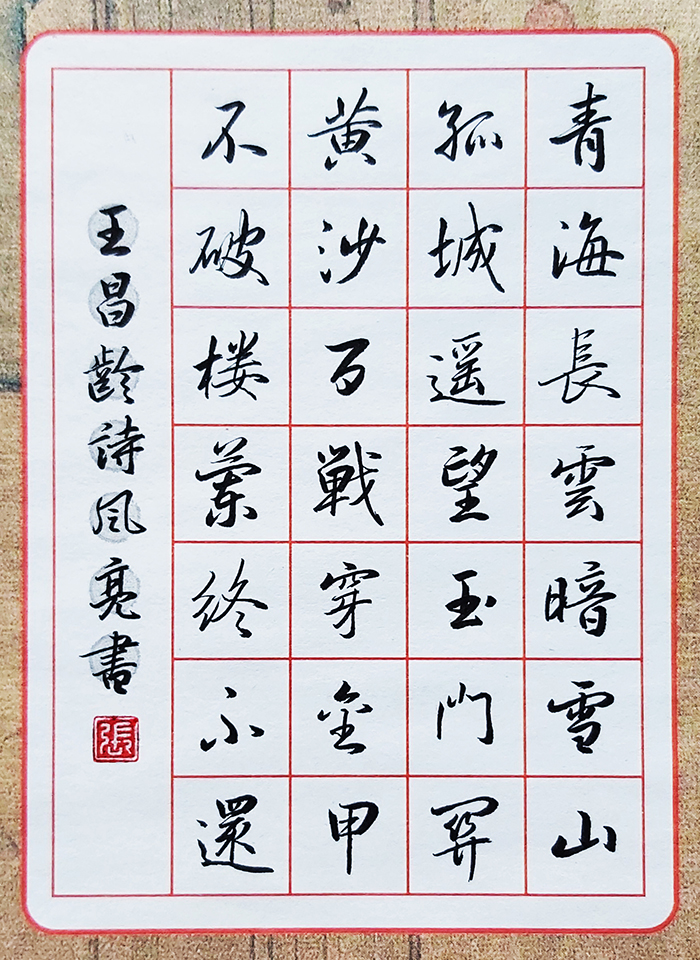 青海長雲暗雪山
孤城遥望玉門関
黄沙百戦穿金甲
不破楼蘭終不還
王昌齡詩风亮書
張